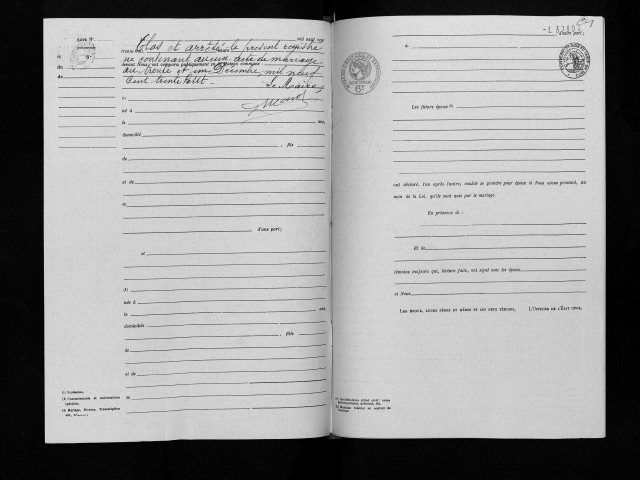 ACTE N°
mil neuf cent
Clos et arrêté le présent registre
ne contenant aucun acte de mariage
au trente et un Décembre mil neuf
cent trente sept -
Le Maire,
né à
le ans,
domicilié
, fils
de
et de
d'une part;
et
(1)
née à
le ans,
domiciliée
, fille
de
et de
(1) Profession.
(2) Consentements et autorisations
spéciales.
(3) Mariage, Divorce, Transcription
d'autre part;
à
6F
Les futurs époux
ont déclaré, l'un après l'autre, vouloir se prendre pour époux et Nous avons prononcé, au
nom de la Loi, qu'ils sont unis par le mariage.
En présence de :
Et de
témoins majeurs qui, lecture faite, ont signé avec les époux
et Nous
LES ÉPOUX, LEURS PÈRES ET MÈRES ET LES DEUX TÉMOINS. L'OFFICIER DE L'ÉTAT CIVIL.